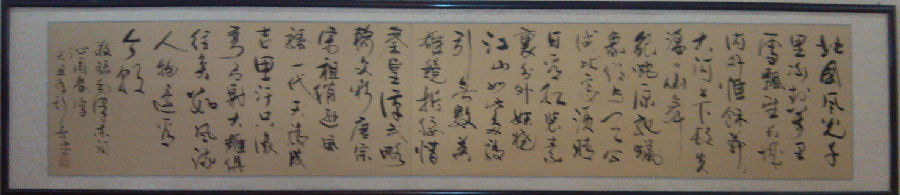 北國風光千
里冰封萬里
雪飄望長城
内外惟餘莽
大河上下頓失
滔滔山舞
銀蛇原馳蠟
象欲與天公
試比高須晴
日看紅裝素
裹分外妖嬈
江山如此多嬌
引無數英
雄競折腰惜
秦皇漢武略
輸文采唐宗
宋祖稍遜風
騷一代天驕成
吉思汗只識
彎弓射大雕俱
往矣數風流
人物還看
今朝
敬錄毛澤東詞
沁園春雪